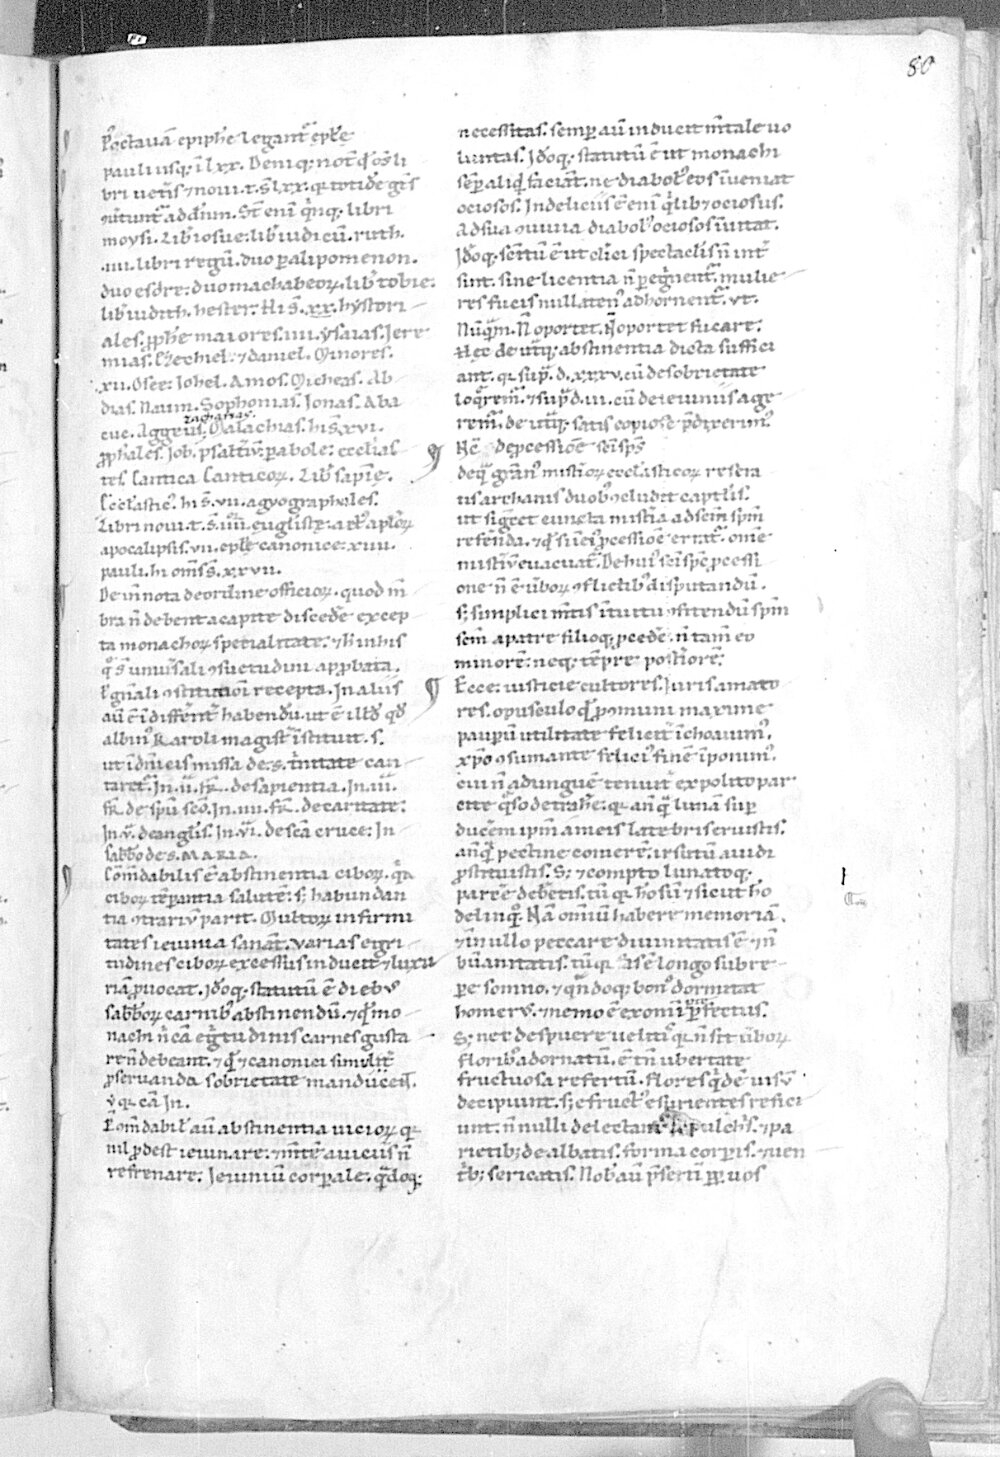 80
P' octauā epiphīe legant᷑ ep̄le
pauli usq; ī lxx. Deniq; not̄ qđ oēs li
bri uet̄is ⁊ noui .t. s̄ lxx. q̄ totidē gēs
ad dn̄m. St̄ eni q̄nq; libri
moysi. Lib' iosue: lib' iudicū. ruth.
.iiii. libri regū. duo paralipomenon.
duo esdre: duo machabeoꝝ. lib' tobie:
lib' iudith. hester. Hi s̄ .xx. hystori
ales. ꝓphe maiores .iiii. ysaias. Jere
mias. Ezechiel. ⁊ daniel. Minores.
.xii. Osee: Johel. Amos. Micheas. Ab
dias. Naum. Sophonias. Jonas. Aba
zacharias.
cuc. Aggeus. Malachias. hi s̄ xvi.
ꝓphales. Job. psalt̄iū. parabole. eccl'ias
tes. Cantica Canticoꝝ. Lib' sapīe.
Eccl'astic'. hi s̄ .vii. agyographales.
Libri noui .t. s̄ .iiii. euḡliste. act' aploꝝ
apocalipsis. vii. ep̄le canonice: xiiii.
pauli. hi om̄s s̄ .xxvii.
De īn nota de ordine officioꝝ. quod m̄
bra n̄ debent a capite discedē excep
ta monachoꝝ specialitate: ⁊ h̄ in his
q̄ s̄ uniu'sali ꝯsuetudini app̄bata.
t̄ gn̄ali ꝯstitutioni recepta. In aliis
aū ē īdiffent̄ habendū. ut ē illđ qđ
albin' karoli magist̄ īstituit. s.
ut ī dn̄icis missa de .s. t̄nitate can
taret᷑. In .ii. fr̄. de sapientia. In .iii.
fr̄. de sp̄u sc̄o. In .iiii. fr̄. de caritate:
In .v. de angl'is. In .vi. de sc̄a cruce: In
sabb̄o de .s. MARIA.
Cōm̄dabilis ē abstinentia ciboꝝ. q̄a
ciboꝝ tēpantia salutē: s; habundan
tia ꝯtrariū parit. Multoꝝ infirmi
tates ieiunia sanāt. varias egri
tudines ciboꝝ excessus inducit ⁊ luxu
riā ꝓuocat. Jđoq; statutū ē dieb;
sabb̄oꝝ carnib' abstinendū. ⁊ qđ mo
nachi n̄ cā eḡtudinis carnes gusta
re n̄ debeant. ⁊ qđ ⁊ canonici similit̄
ꝓ seruanda sobrietate manducent.
v q. cā In.
Cōm̄dabil' aū abstinentia uicioꝝ q̄
nil ꝓdest ieiunare: ⁊ m̄tē a uiciis n̄
refrenare: Jeiuniū corpale. q̄ndoq;
necessitas. semp aū inducit m̄tale uo
luntas. Jđoq; statutū ē ut monachi
sēp aliqđ faciāt. ne diabol' eos īueniat
ociosos. In deliciis ē eni q̄lib; ociosus.
Ad sua ꝯuiuia diabol' ociosos īuitat.
Jđoq; sētitū ē ut cl'ici spectacl'is n̄ int̄
sint. sine licentia n̄ peḡnent᷑. mulie
res fucis nullaten' adhornent᷑. vt.
Nūq̄m. N̄ oportet. n̄ oportet fucare.
Hec de utq̄; abstinentia dicta suffici
ant. q̄ sup̄. d. xxxv. cū de sobrietate
loq̄rem᷑. ⁊ sup̄ d. iii. cū de ieiuniis age
rem᷑. de utq̄; satis copiose p̄dixerim'.
Hc̄ de pcessiōe sc̄i sp̄s
deq; grān' mistioꝝ eccl'asticoꝝ resera
tis archanis duob' ꝯcludet capl'is.
ut siḡret cuncta mist̄ia ad sc̄m sp̄m
referēda. ⁊ qđ sī ei' ꝓcessiōe errat᷑. om̄e
mist̄iū euacuat᷑. De hui' sc̄i sp̄s ꝓcessi
one n̄ ē ūboꝝ ꝯflictib' disputandū.
s; simplici m̄tis ītuitu ꝯfitendū sp̄m
sc̄m a patre filioq; ꝓcedē. n̄ tam̄ eo
minorē: neq; tēpre posteriorē:
Ecce: iusticie cultores. Juris amato
res. opusculo qđ ꝯmuni maxime
paupū utilitate felicit̄ īchoauim'.
xp̄o ꝯsumante felici' finē īponim'.
cui n̄ adunguē tenuit᷑ expolito par
cite q̄so det̄hē: q̄ anq̄ lunā sup
ducem ip̄m a meis latebris eruistis.
anq̄ pectine comerē. irsutū auidi
ꝓstituistis. S; ⁊ compto lunatoq;
parcē debetis. tū q̄ h̄o sū ⁊ sicut h̄o
delinq̄. Nā omniū habere memoriā.
⁊ in nullo peccare diuinitatis ē ⁊ n̄
hūanitatis. tū q̄ fas ē longo subre
pe somno. ⁊ qn̄doq; bon' dormitat
homer'. ⁊ nemo ē ex omi pte p̄fectus.
S; nec despuere uelitis q̄ n̄ sit ūboꝝ
florib' adornatū. ē tn̄ ubertate
fructuosa refertū. flores q̄dē uis'
decipiunt. s; ⁊ fruct' esurientes refici
unt. n̄ nulli delectant᷑ sepulch's. ⁊ pa
rietib; dealbatis. forma corpis. ⁊ uen
t̄b; sericatis. Nob' aū p̄sertī ꝓp̄ uos